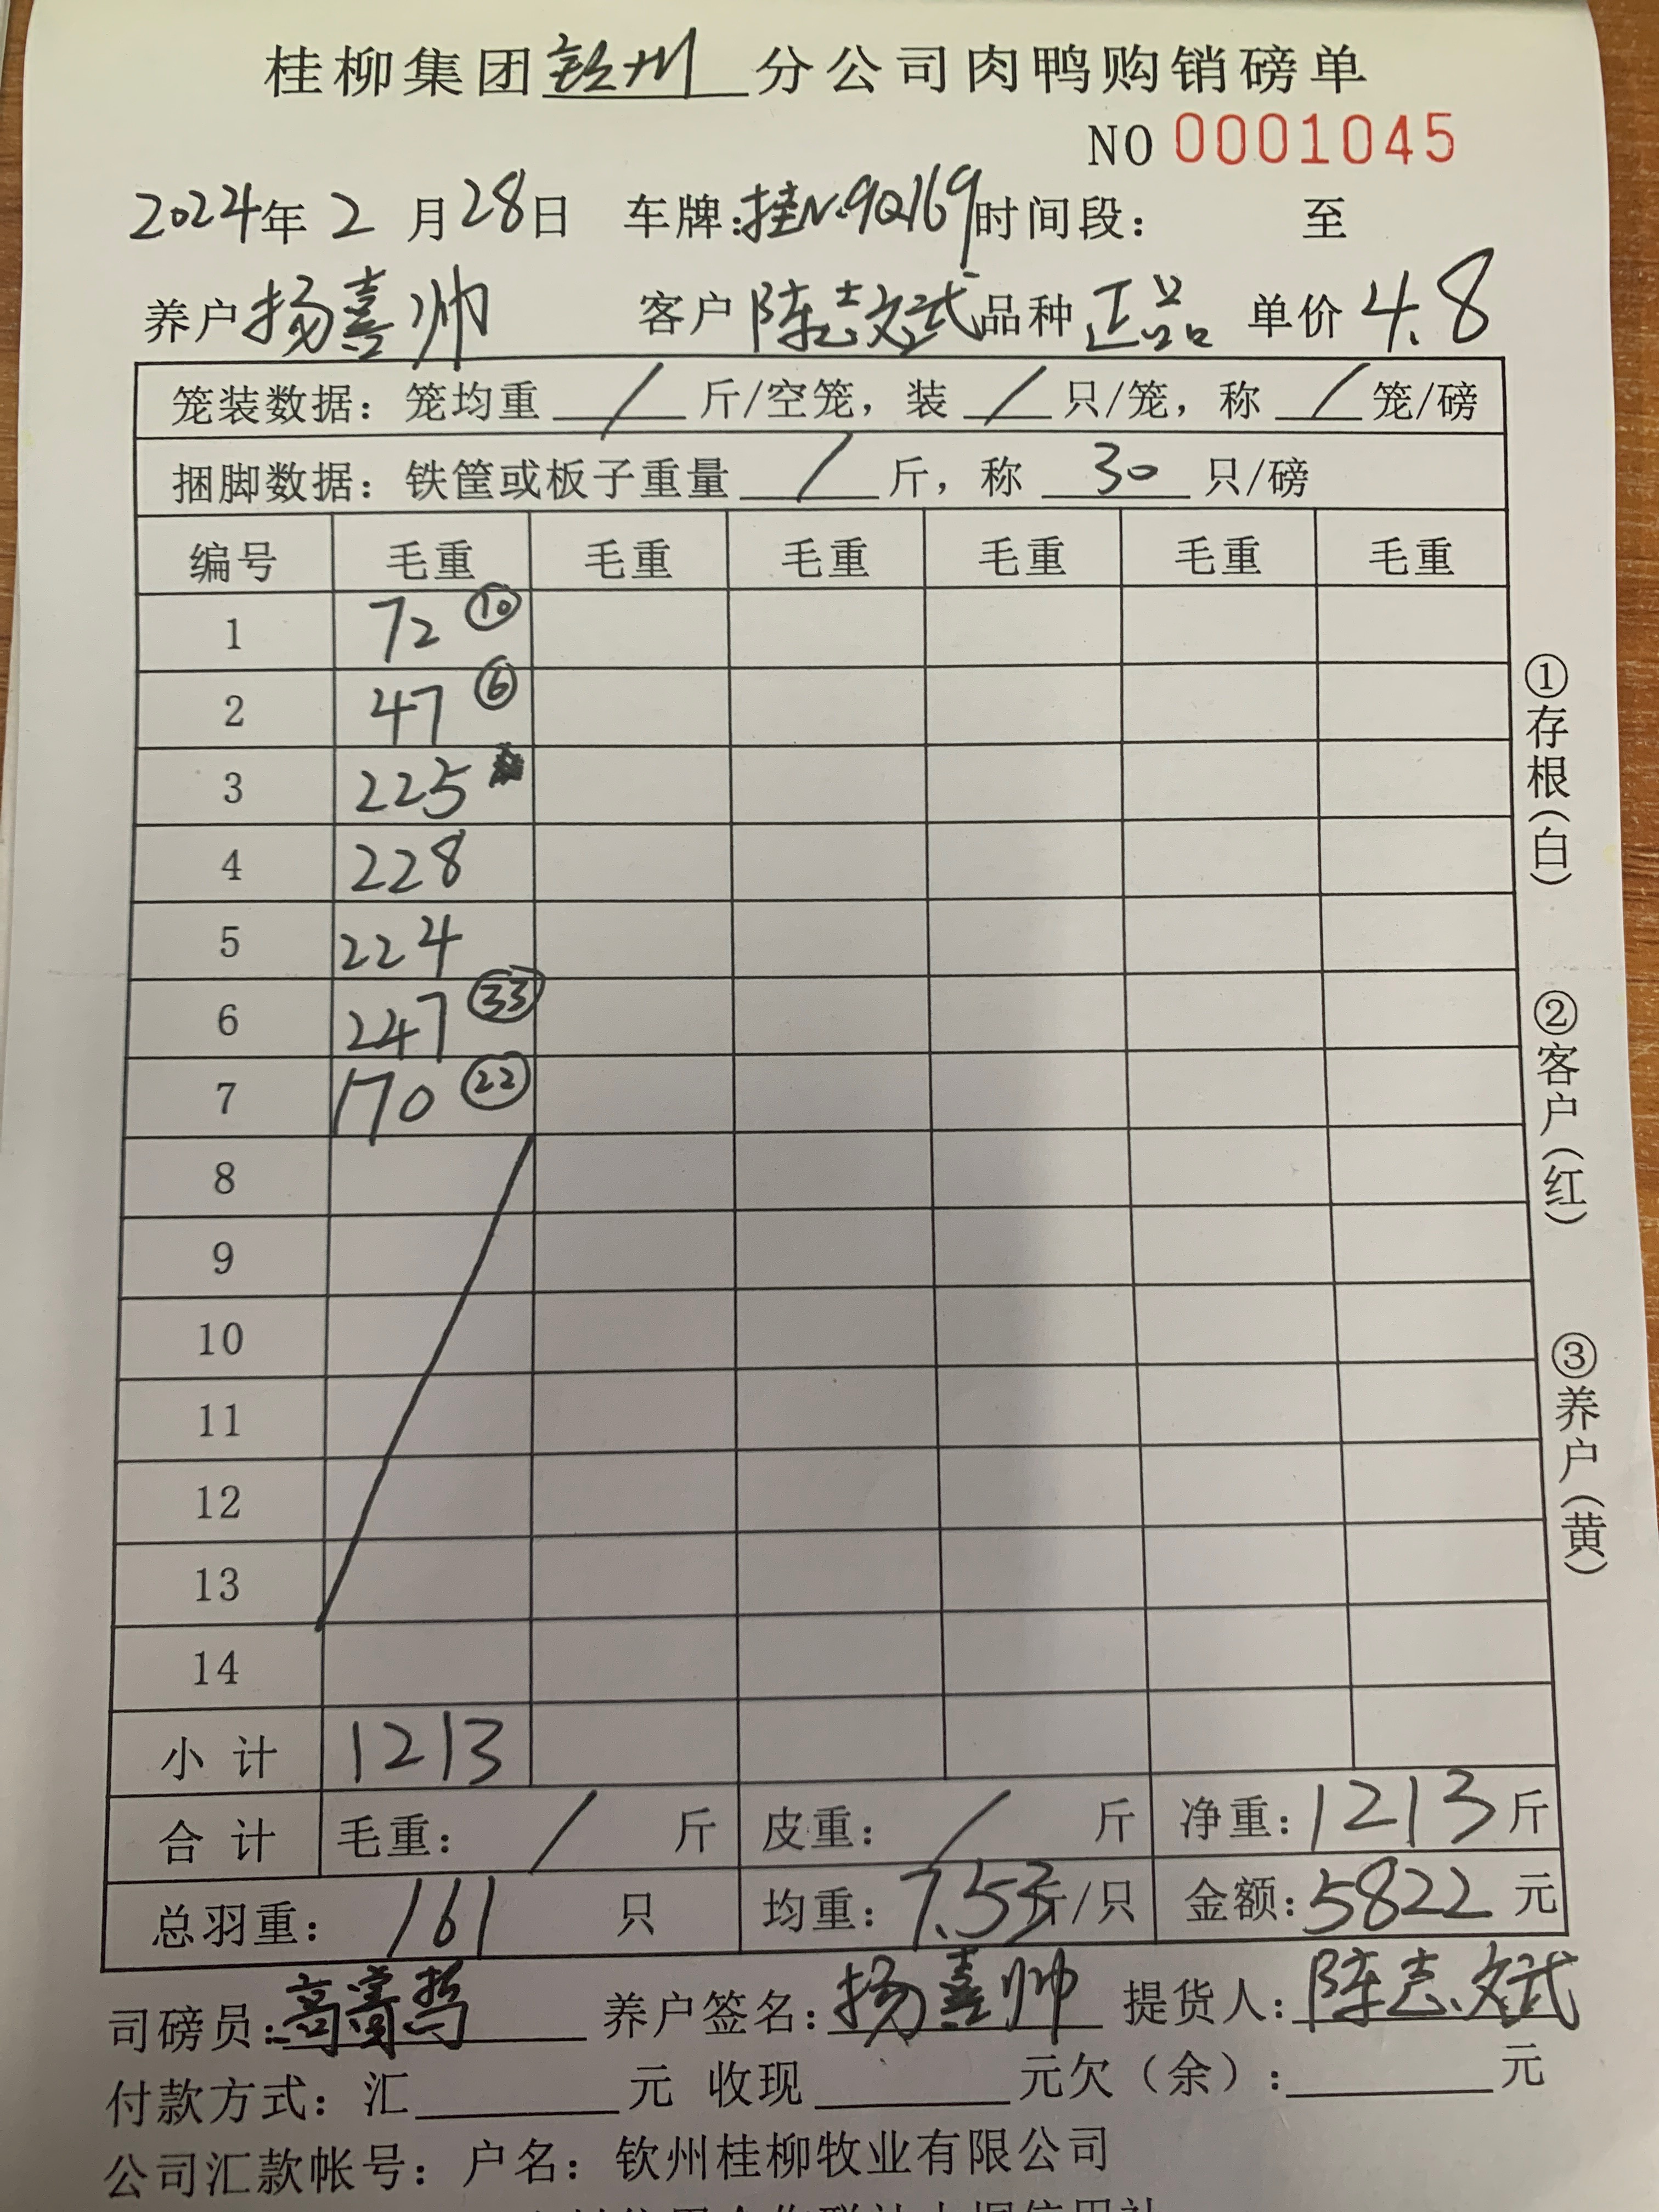 桂柳集团钦州分公司肉鸭购销磅单
NO 0001045
2024年 2 月 28日 车牌:桂N.9Q169时间段: 至
养户 扬喜帅 客户 陈志斌 品种 正品 单价 4.8
笼装数据: 笼均重 / 斤/空笼, 装 / 只/笼, 称 / 笼/磅
捆脚数据: 铁筐或板子重量 / 斤, 称 30 只/磅
编号 毛重 毛重 毛重 毛重 毛重 毛重
1 72 ⑩
2 47 ⑥
3 225
4 228
5 224
6 247 ㉝
7 170 ㉒
8
9
10
11
12
13
14
小 计 1213
合 计 毛重: / 斤 皮重: / 斤 净重: 1213 斤
总羽重: 161 只 均重: 7.53斤/只 金额: 5822 元
司磅员: 养户签名: 扬喜帅 提货人: 陈志斌
付款方式: 汇 元 收现 元欠(余): 元
公司汇款帐号: 户名: 钦州桂柳牧业有限公司
①存根(白)
②客户(红)
③养户(黄)